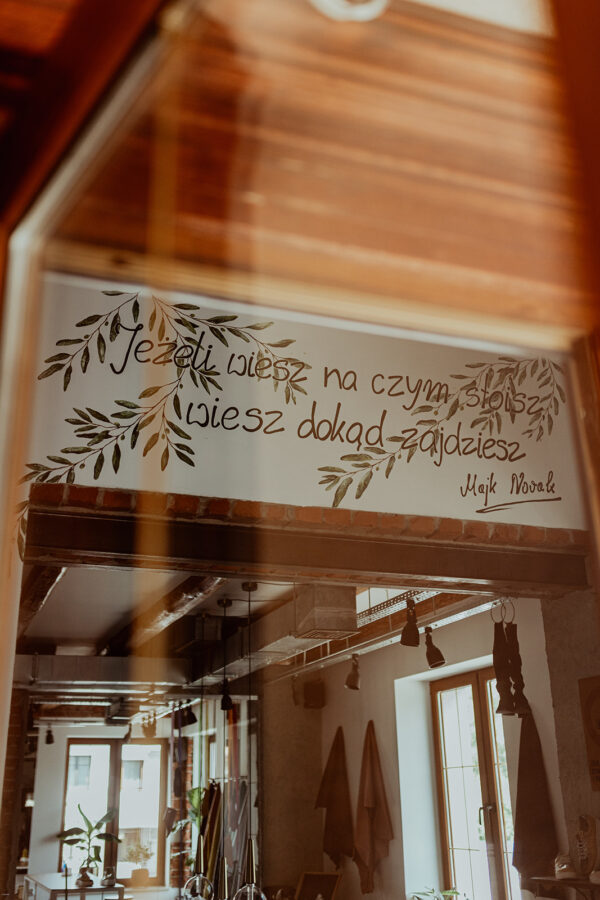 Jeżeli wiesz na czym stoisz
wiesz dokąd zajdziesz
Majk Novak